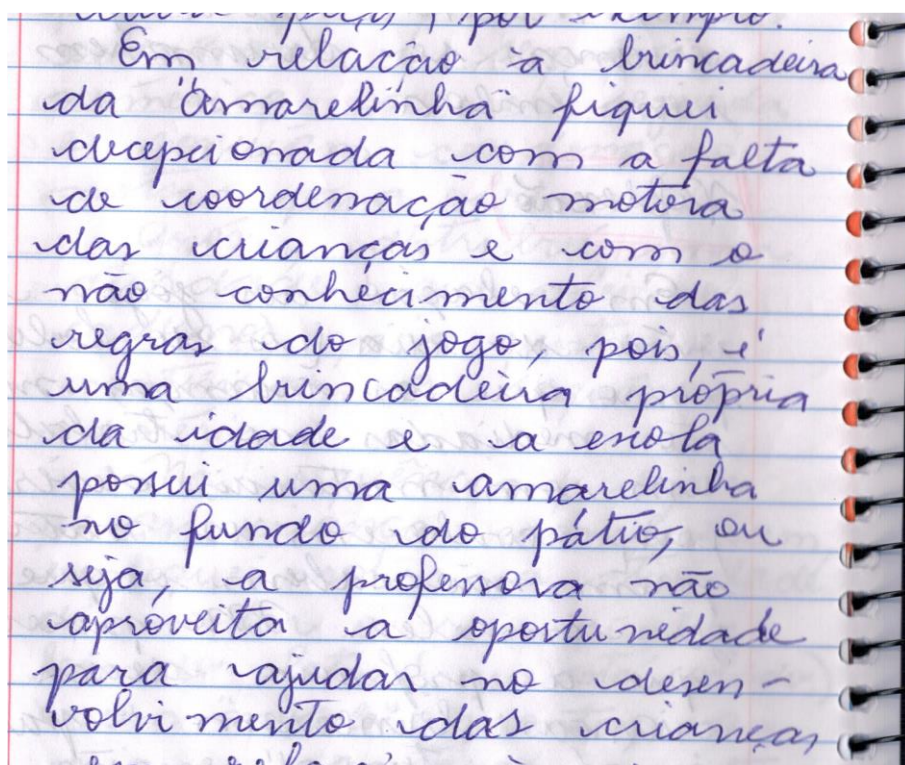 por exemplo.
Em relação à brincadeira
da "amarelinha" fiquei
decepcionada com a falta
de coordenação motora
das crianças e com o
não conhecimento das
regras do jogo, pois, é
uma brincadeira própria
da idade e a escola
possui uma amarelinha
no fundo do pátio, ou
seja, a professora não
aproveita a oportunidade
para ajudar no desen-
volvimento das crianças